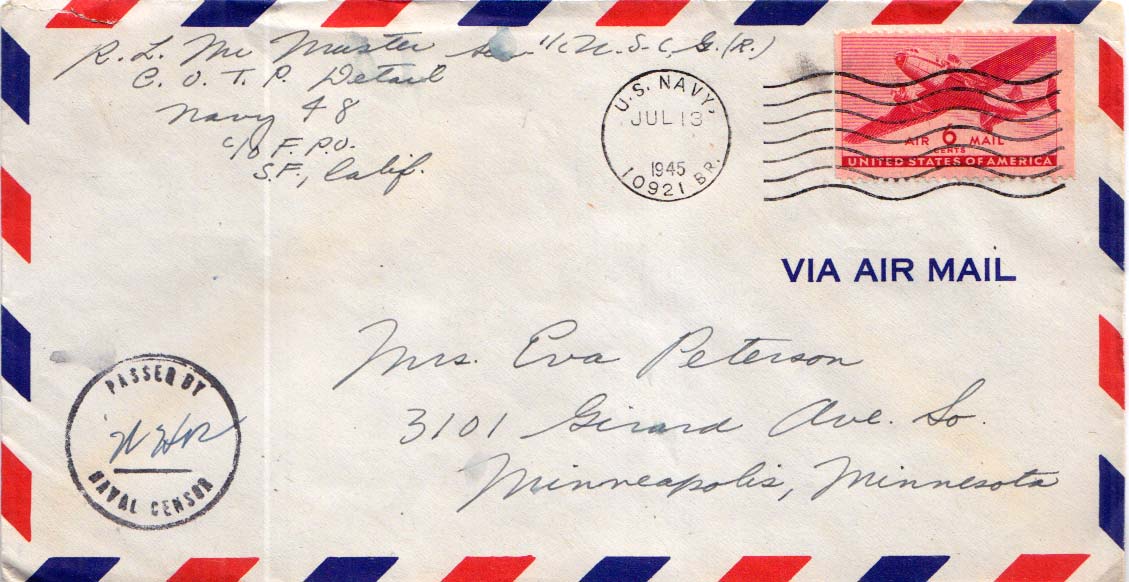 R. L. Mc Master Sea 1/c U.S.C.G.(R.)
C. O. T. P. Detail
Navy 48
c/o F.P.O.
S.F., Calif.
U.S. NAVY
JUL 13
1945
10921 BR.
AIR 6 MAIL
CENTS
UNITED STATES OF AMERICA
VIA AIR MAIL
Mrs. Eva Peterson
3101 Girard Ave. So.
Minneapolis, Minnesota
PASSED BY
NAVAL CENSOR